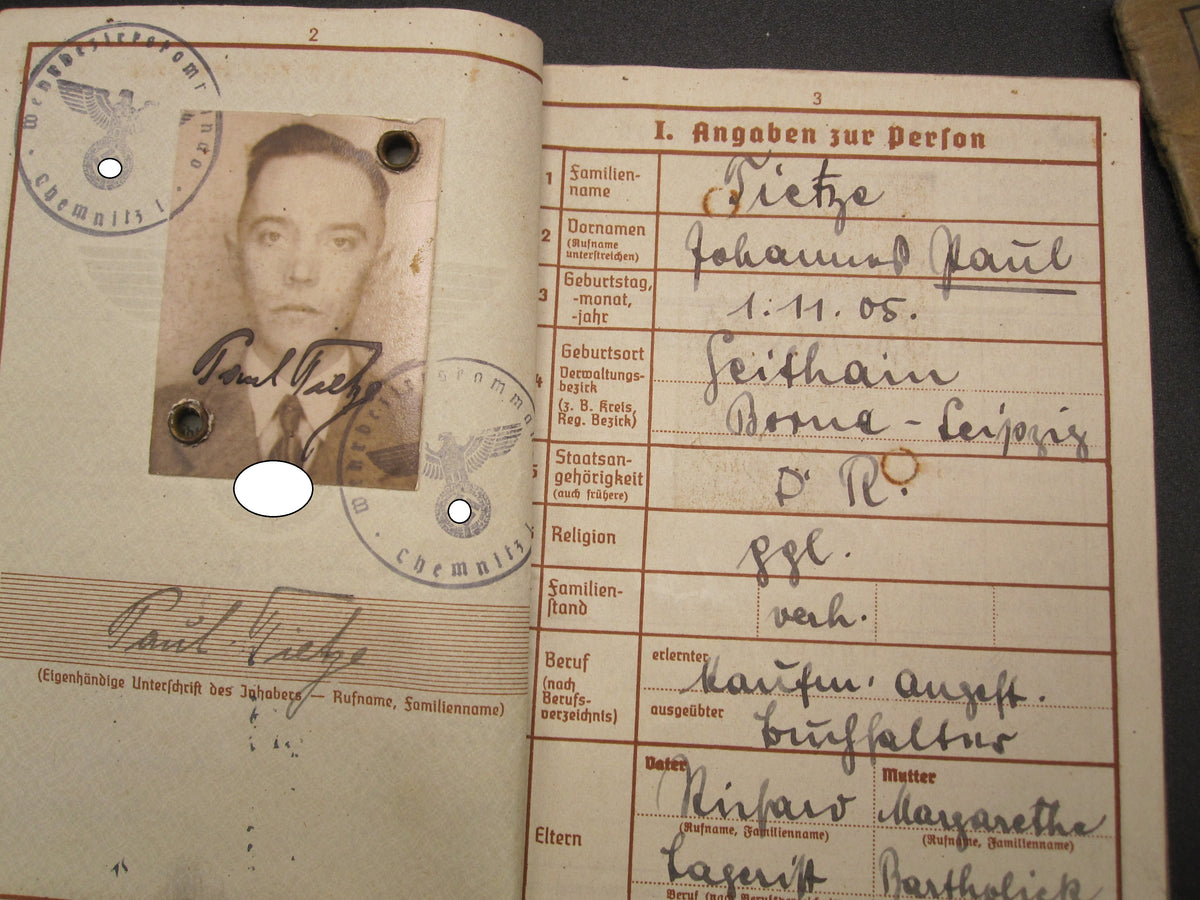 2
Chemnitz 1
Paul Tietze
Chemnitz
Paul Tietze
(Eigenhändige Unterschrift des Inhabers — Rufname, Familienname)
3
I. Angaben zur Person
1 Familien-
name
Tietze
2 Vornamen
(Rufname
unterstreichen)
Johannes Paul
3 Geburtstag,
-monat,
-jahr
1. 11. 05.
4 Geburtsort
Geithain
Verwaltungs-
bezirk
(z. B. Kreis,
Reg. Bezirk)
Borna - Leipzig
5 Staatsan-
gehörigkeit
(auch frühere)
D. R.
Religion
ggl.
Familien-
stand
verh.
Beruf
(nach
Berufs-
verzeichnis)
erlernter
Kaufm. Angest.
ausgeübter
Buchhalter
Eltern
Vater
Richard
(Rufname, Familienname)
Lagerist
Mutter
Margarethe
(Rufname, Familienname)
Bartholick